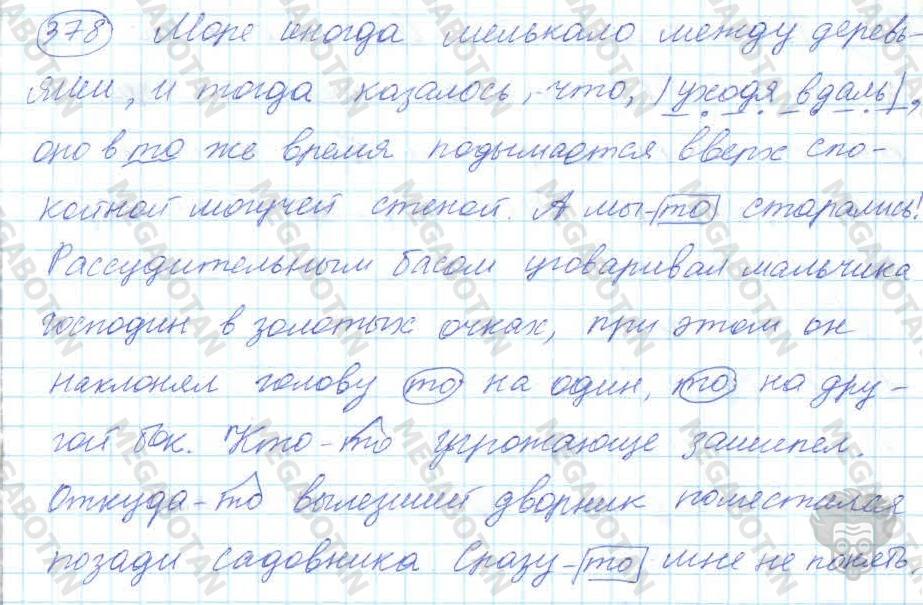 378 Море иногда мелькало между деревь-
ями, и тогда казалось, что, |уходя вдаль|,
оно в то же время подымается вверх спо-
койной могучей стеной. А мы-то старались!
Рассудительным басом уговаривал мальчика
господин в золотых очках, при этом он
наклонял голову то на один, то на дру-
гой бок. Кто-то угрожающе зашипел.
Откуда-то вылезший дворник поместился
позади садовника Сразу-то мне не понять.
MEGABOTAN